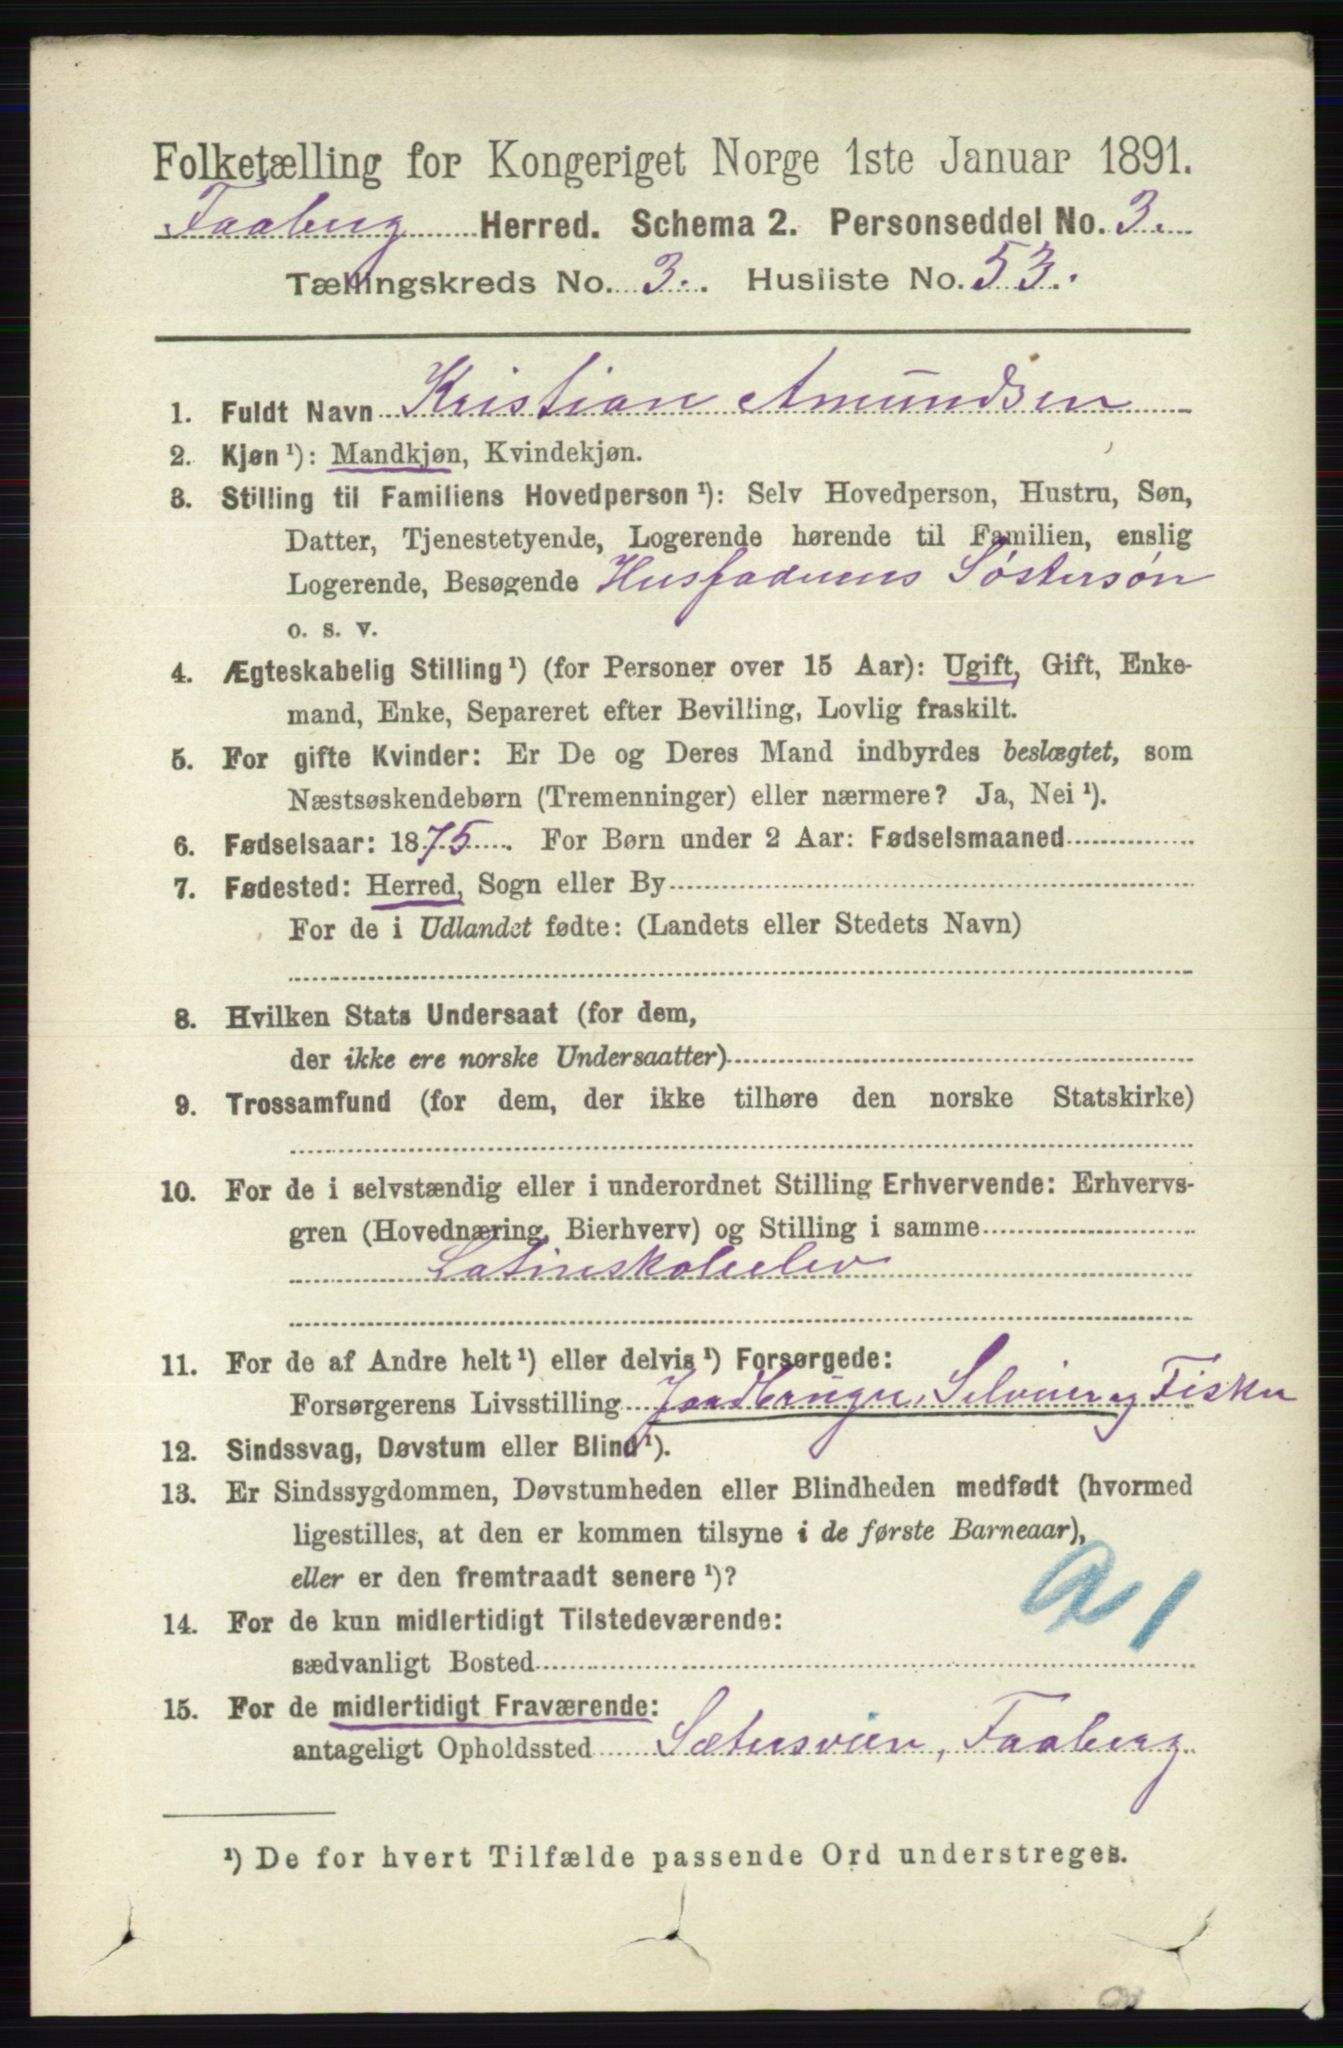 Folketælling for Kongeriget Norge 1ste Januar 1891.
Faaberg Herred. Schema 2. Personseddel No. 3.
Tællingskreds No. 3. Husliste No. 53.
1. Fuldt Navn Kristian Amundsen
2. Kjøn ¹): Mandkjøn, Kvindekjøn.
3. Stilling til Familiens Hovedperson ¹): Selv Hovedperson, Hustru, Søn,
Datter, Tjenestetyende, Logerende hørende til Familien, enslig
Logerende, Besøgende Husfaderens Søstersøn
o. s. v.
4. Ægteskabelig Stilling ¹) (for Personer over 15 Aar): Ugift, Gift, Enke-
mand, Enke, Separeret efter Bevilling, Lovlig fraskilt.
5. For gifte Kvinder: Er De og Deres Mand indbyrdes beslægtet, som
Næstsøskendebørn (Tremenninger) eller nærmere? Ja, Nei ¹).
6. Fødselsaar: 1875. For Børn under 2 Aar: Fødselsmaaned
7. Fødested: Herred, Sogn eller By
For de i Udlandet fødte: (Landets eller Stedets Navn)
8. Hvilken Stats Undersaat (for dem,
der ikke ere norske Undersaatter)
9. Trossamfund (for dem, der ikke tilhøre den norske Statskirke)
10. For de i selvstændig eller i underordnet Stilling Erhvervende: Erhvervs-
gren (Hovednæring, Bierhverv) og Stilling i samme
Latinskoleelev
11. For de af Andre helt ¹) eller delvis ¹) Forsørgede:
Forsørgerens Livsstilling Jordbruger, Selveier og Fisker
12. Sindssvag, Døvstum eller Blind ¹).
13. Er Sindssygdommen, Døvstumheden eller Blindheden medfødt (hvormed
ligestilles, at den er kommen tilsyne i de første Barneaar),
eller er den fremtraadt senere ¹)?
14. For de kun midlertidigt Tilstedeværende:
sædvanligt Bosted
15. For de midlertidigt Fraværende:
antageligt Opholdssted Sætersveen, Faaberg
¹) De for hvert Tilfælde passende Ord understreges.